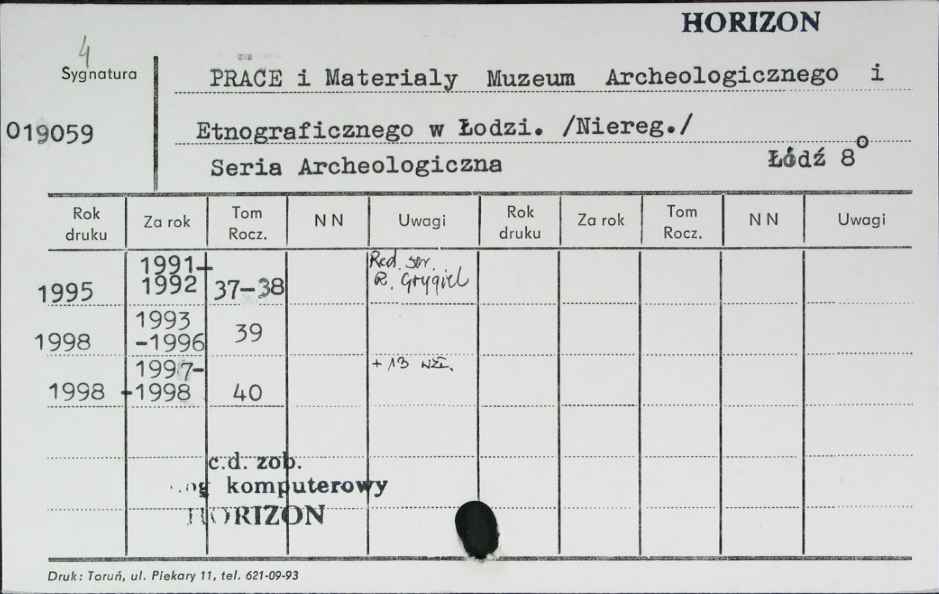 HORIZON
4
Sygnatura
PRACE i Materialy Muzeum Archeologicznego i
019059
Etnograficznego w Łodzi. /Niereg./
Seria Archeologiczna Łódź 8o
Rok druku Za rok Tom Rocz. N N Uwagi Rok druku Za rok Tom Rocz. N N Uwagi
1995 1991-1992 37-38 Red. ser. R. Grygiel
1998 1993-1996 39
1998 1997-1998 40 + 13 wkł.
c.d. zob.
komputerowy
HORIZON
Druk: Toruń, ul. Piekary 11, tel. 621-09-93